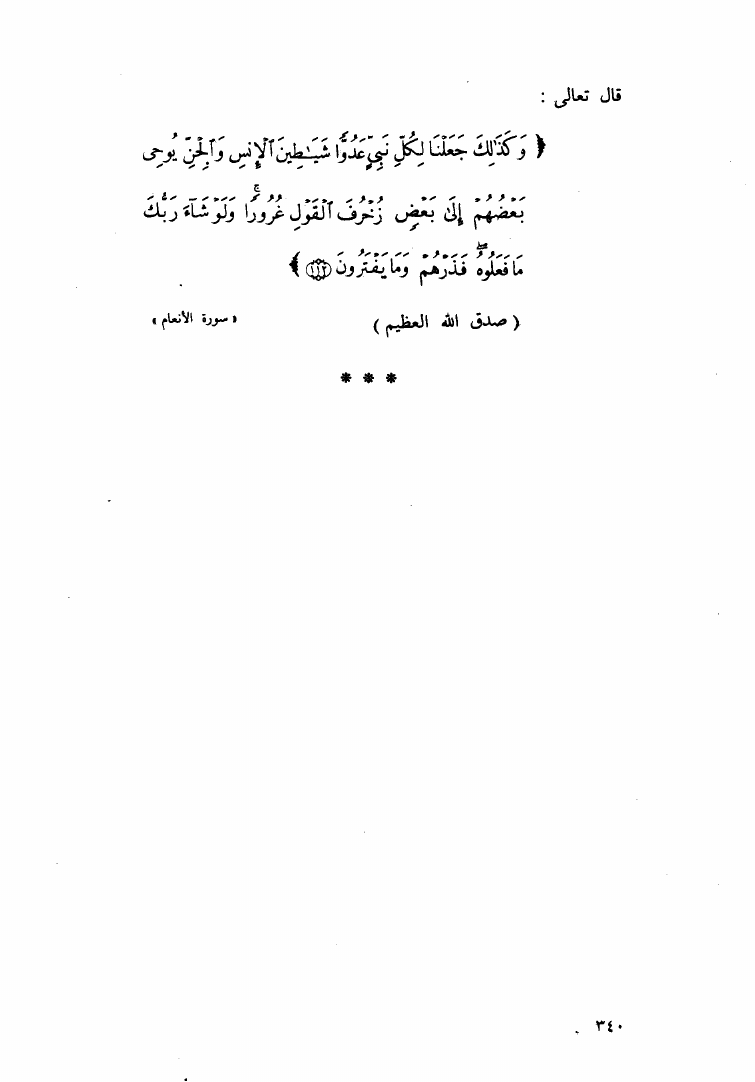 قال تعالى :
﴿ وَكَذَٰلِكَ جَعَلْنَا لِكُلِّ نَبِيٍّ عَدُوًّا شَيَـٰطِينَ ٱلْإِنسِ وَٱلْجِنِّ يُوحِى
بَعْضُهُمْ إِلَىٰ بَعْضٍ زُخْرُفَ ٱلْقَوْلِ غُرُورًا ۚ وَلَوْ شَآءَ رَبُّكَ
مَا فَعَلُوهُ ۖ فَذَرْهُمْ وَمَا يَفْتَرُونَ ١١٢ ﴾
( صدق الله العظيم ) « سورة الأنعام »
* * *
٣٤٠